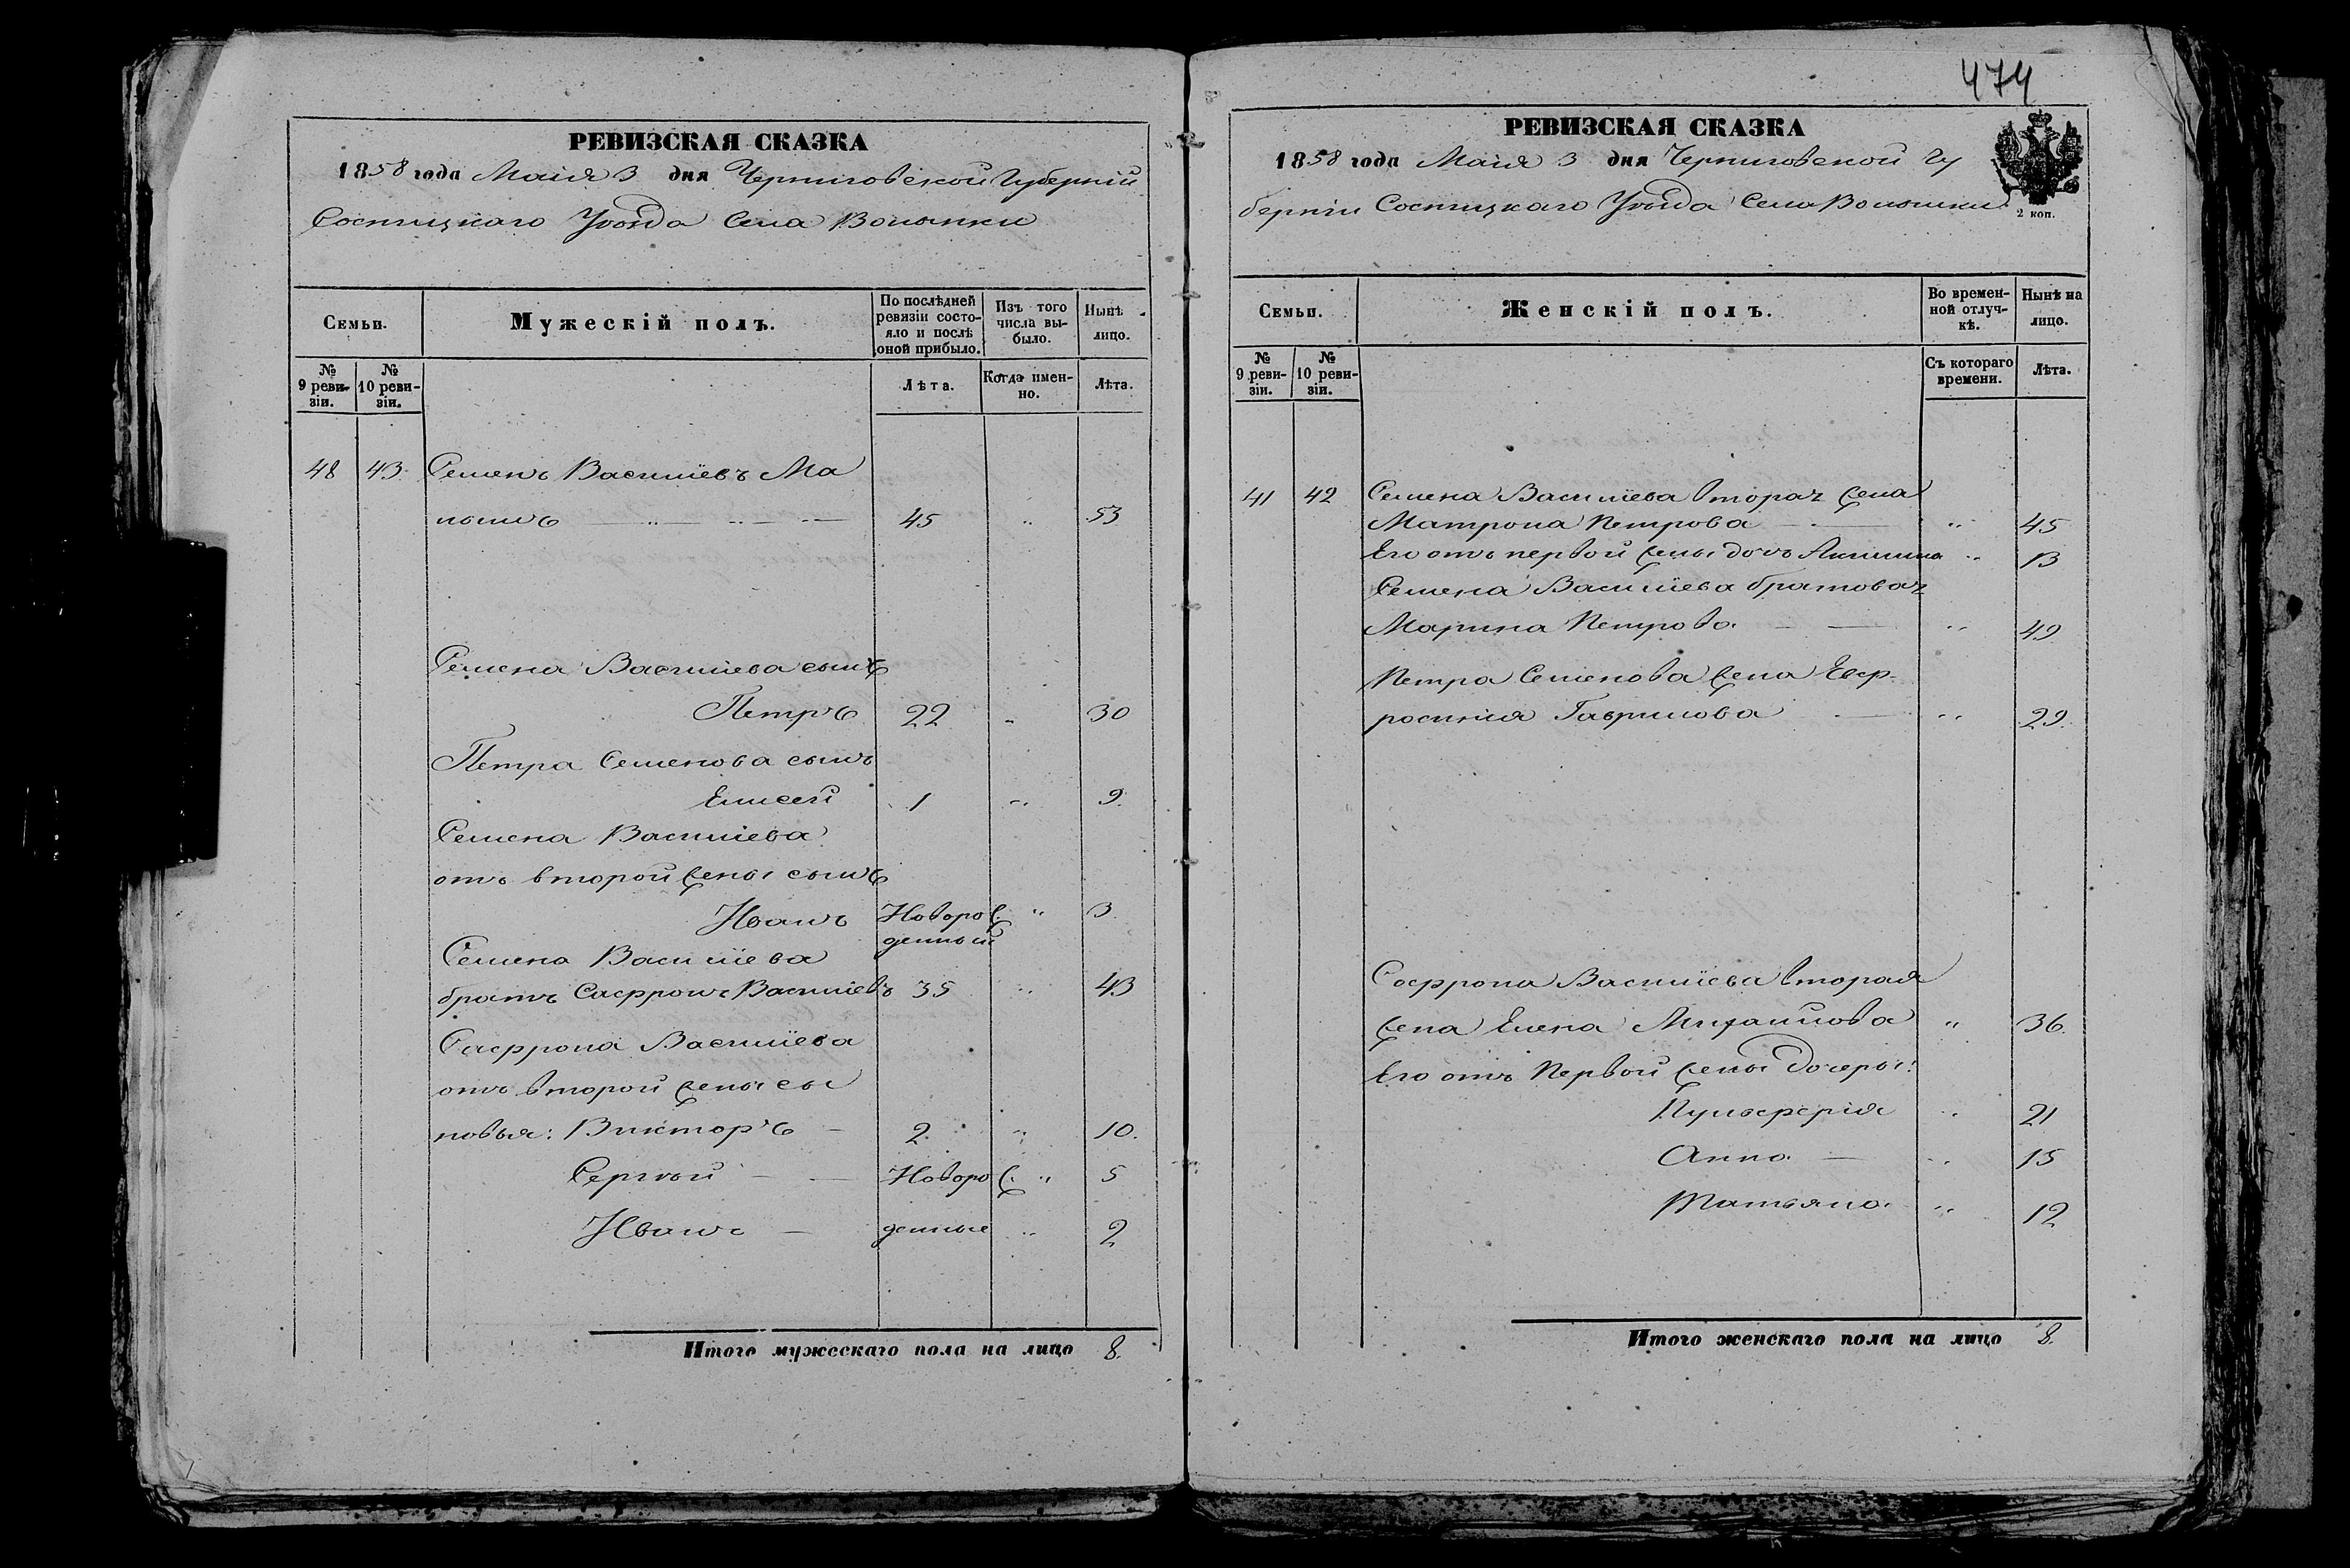 РЕВИЗСКАЯ СКАЗКА
1858 года Маія 3 дня Черниговской Губерніи
Сосницкаго Уѣзда Села Волынки
Семьи.
Мужескій полъ.
По послѣдней ревизіи состояло и послѣ оной прибыло.
Изъ того числа выбыло.
Нынѣ лицо.
№ 9 ревизіи.
№ 10 ревизіи.
Лѣта.
Когда именно.
Лѣта.
48 43. Семенъ Василіевъ Ма
45 " 53
Семена Василіева сынъ
Петръ 22 " 30
Петра Семенова сынъ
Елисей 1 " 9.
Семена Василіева
отъ второй жены сынъ
Иванъ Новорож " 3.
денный
Семена Василіева
братъ Сафронъ Василіевъ 35 " 43
Сафрона Василіева
отъ второй жены сы
новья: Викторъ — 2. " 10.
Сергѣй — — Новорож. " 5
Иванъ — денные " 2
Итого мужескаго пола на лицо 8.
474
РЕВИЗСКАЯ СКАЗКА
1858 года Маія 3 дня Черниговской Гу
берніи Сосницкаго Уѣзда Села Волынки
2 коп.
Семьи.
Женскій полъ.
Во временной отлучкѣ.
Нынѣ на лицо.
№ 9 ревизіи.
№ 10 ревизіи.
Съ котораго времени.
Лѣта.
41 42 Семена Василіева вторая жена
Матрона Петрова — " 45
Его отъ первой жены дочь Акилина " 13
Семена Василіева братовая
Марина Петрова — — " 49
Петра Семенова жена Евф-
росинія Гаврилова — " 29.
Софрона Василіева вторая
жена Елена Михайлова " 36.
Его отъ Первой жены дочеры:
Пульферія " 21
Анна — " 15
Татьяна " 12
Итого женскаго пола на лицо 8.